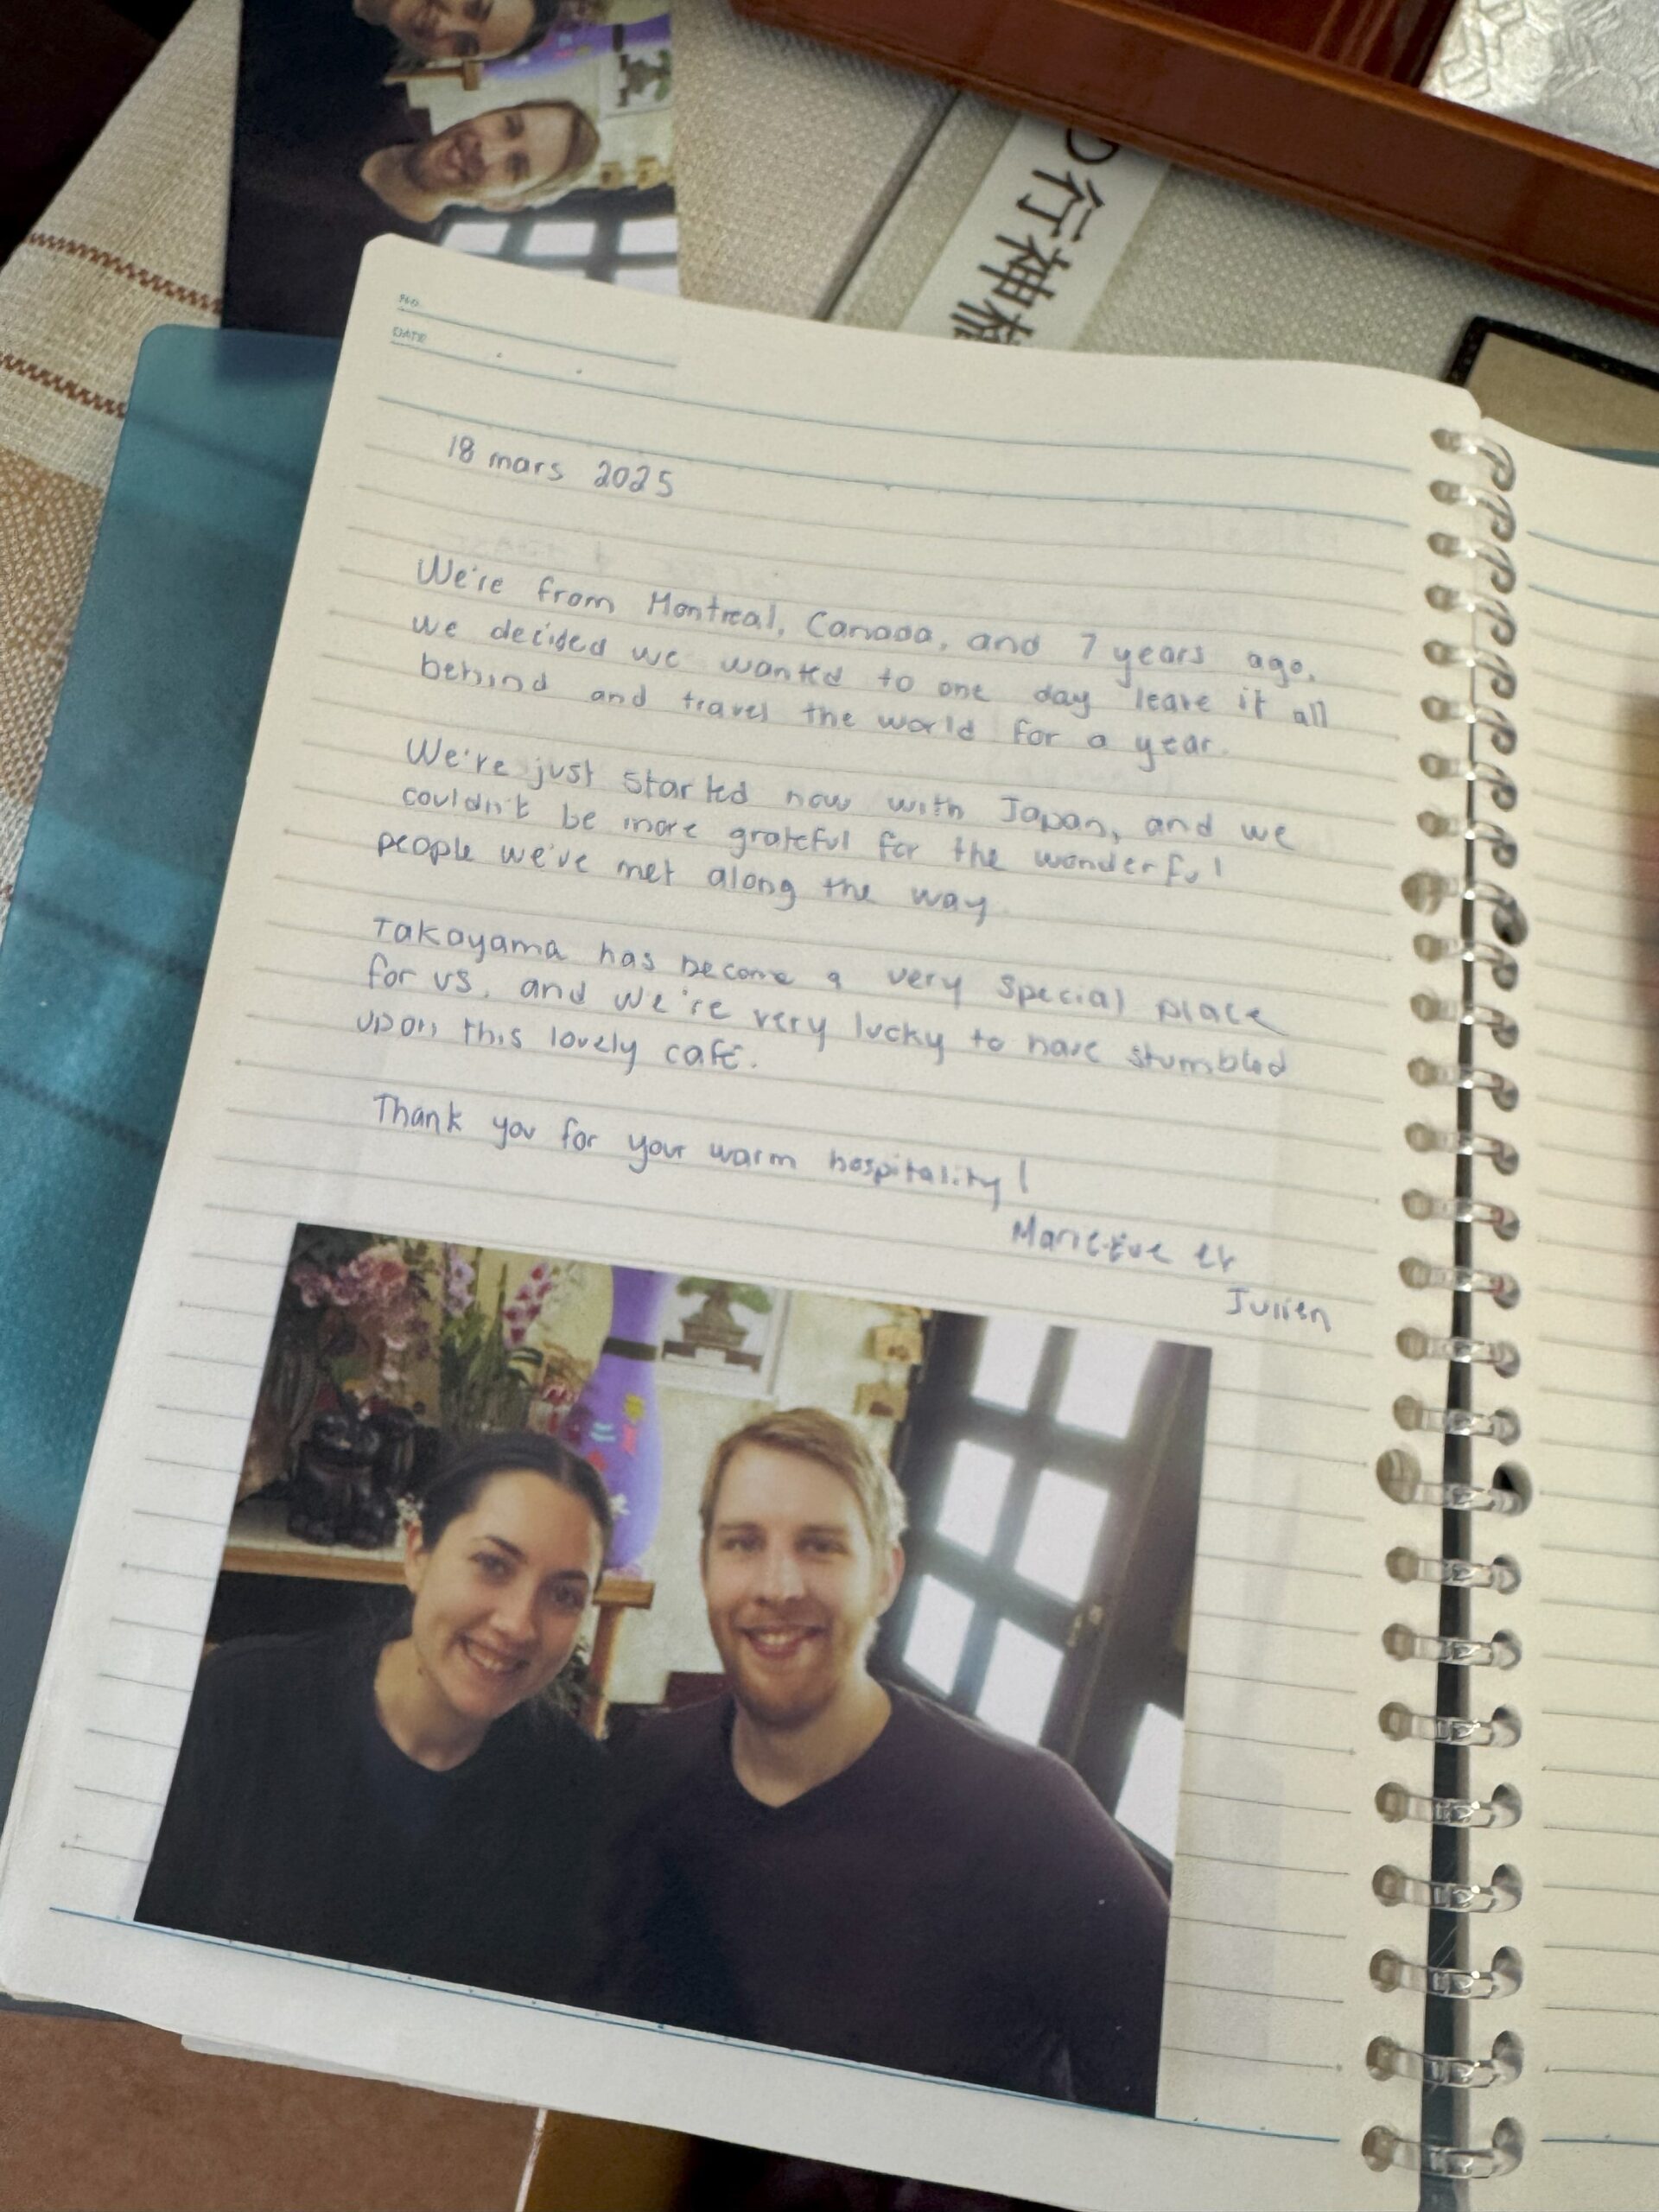 行神
No.
DATE
18 mars 2025
We're from Montreal, Canada, and 7 years ago,
we decided we wanted to one day leave it all
behind and travel the world for a year.
We're just started now with Japan, and we
couldn't be more grateful for the wonderful
people we've met along the way
Takayama has become a very special place
for us, and we're very lucky to have stumbled
upon this lovely café.
Thank you for your warm hospitality!
Marie-Eve et
Julien